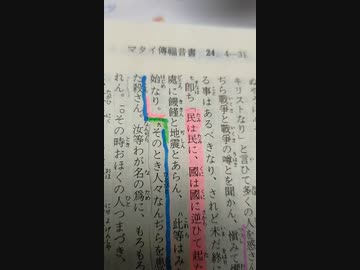 マタイ傳福音書 24. 4—31
キリストなり」と言ひて多くの人を惑さ
ぢら戰爭と戰爭の噂とを聞かん、愼みて
る事はあるべきなり、されど未だ終
即ち「民は民に、國は國に逆ひて起た
處に饑饉と地震とあらん、八此等はみ
始なり。九そのとき人々なんぢらを患
た殺さん。汝等わが名の爲に、もろもろ
れん。一〇その時おほくの人つまづき、